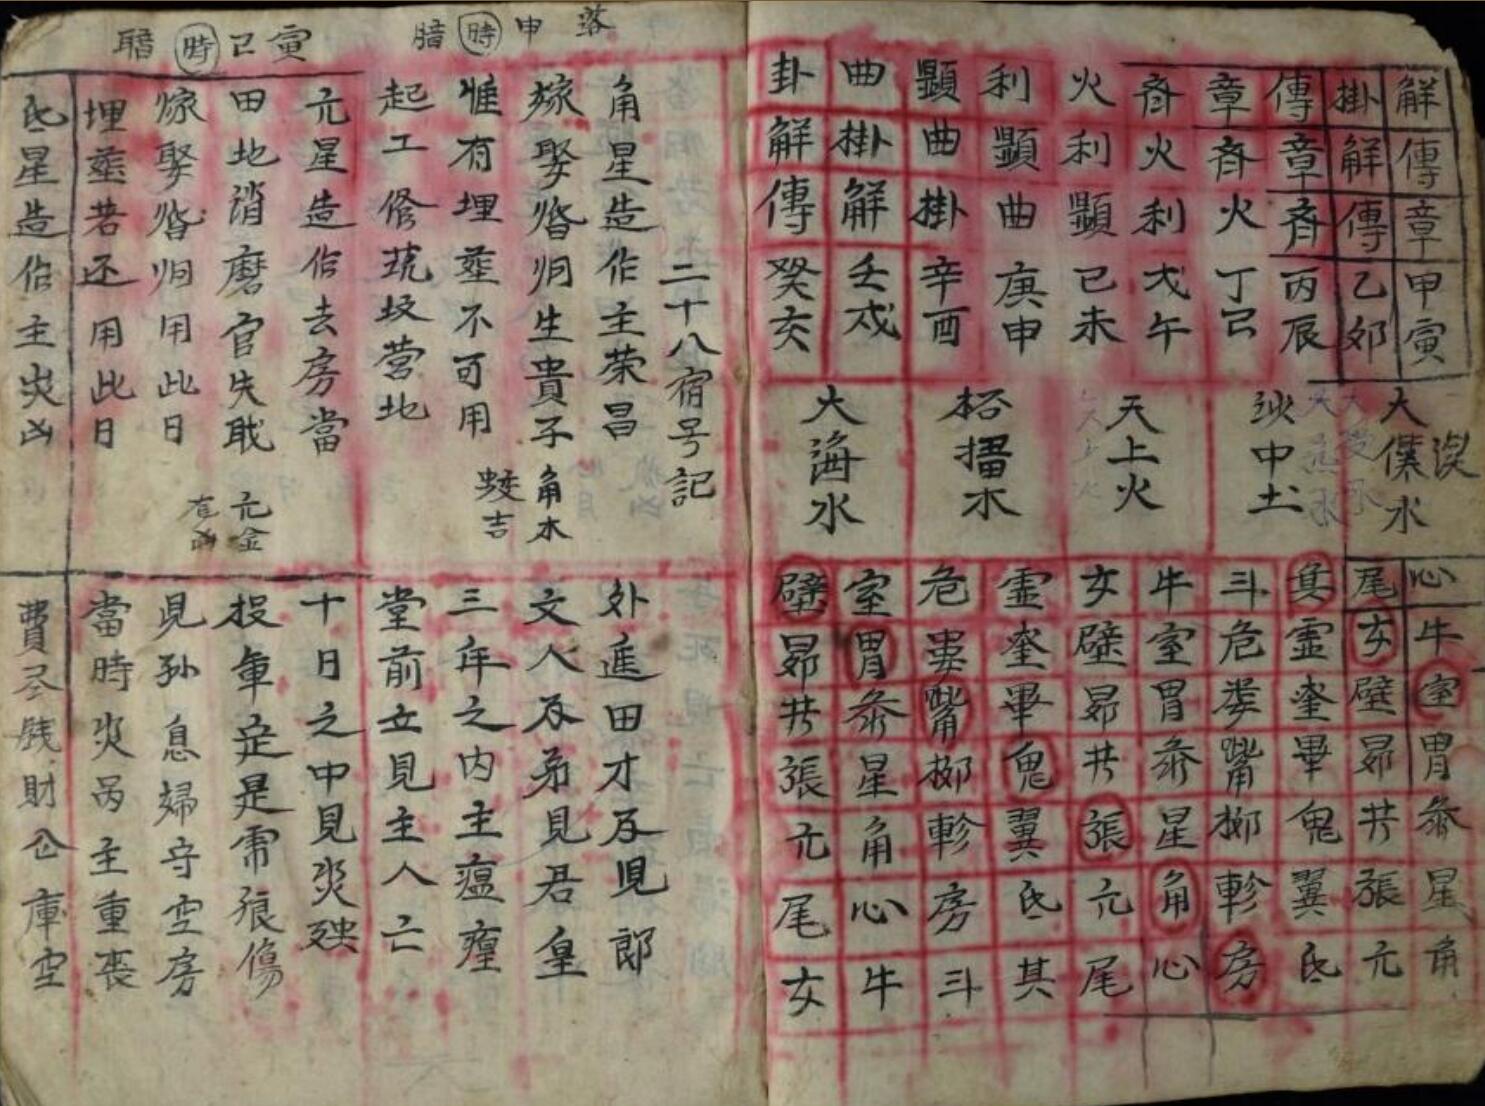 解傳章甲寅
掛解傳乙卯
傳章斉丙辰
章斉火丁巳
斉火利戊午
火利顯已未
利顯曲庚申
顯曲掛辛酉
曲掛解壬戌
卦解傳癸亥
大僕水
中土
天上火
木
大海水
心牛室胃参星角
尾女壁昴井張亢
箕虚奎畢鬼翼氐
斗危婁觜柳軫房
牛室胃参星角心
女壁昴井張亢尾
虚奎畢鬼翼氐其
危婁觜柳軫房斗
室胃参星角心牛
壁昴井張亢尾女
落申時暗
寅己時暗
二十八宿号記
角星造作主荣昌
外進田才及見郎
嫁娶婚归生貴子
文人及弟見君皇
惟有埋葬不可用
三年之内主瘟瘽
角木蛟吉
起工修筑坟营地
堂前立見主人亡
亢星造作去房當
十日之中見災殃
田地消磨官失耺
投軍定是帍狼傷
嫁娶婚归用此日
見孙息婦守空房
亢金
埋葬若还用此日
當時災呙主重喪
氐星造作主災凶
費尽錢財仓庫空